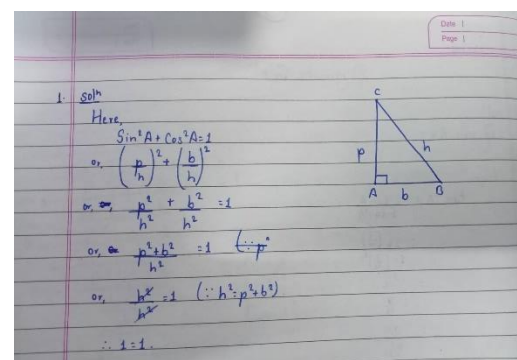 Date :
Page :
1. Solⁿ
Here,
Sin²A + Cos²A = 1
or, (p/h)² + (b/h)²
or, p²/h² + b²/h² = 1
or, (p²+b²)/h² = 1 (∵ p
or, h²/h² = 1 (∵ h² = p²+b²)
∴ 1 = 1.
C
p
h
A
b
B